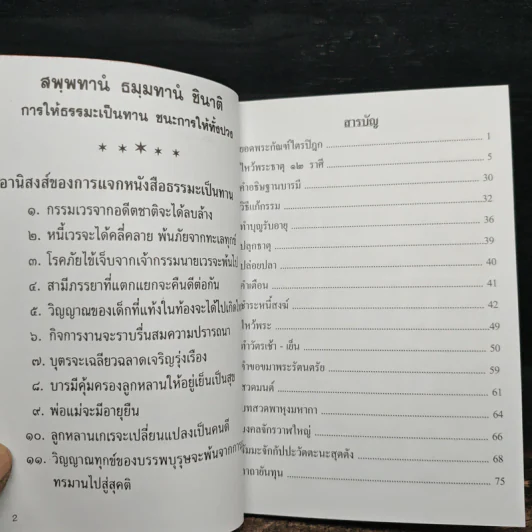 สพฺพทานํ ธมฺมทานํ ชินาติ
การให้ธรรมะเป็นทาน ชนะการให้ทั้งปวง
อานิสงส์ของการแจกหนังสือธรรมะเป็นทาน
๑. กรรมเวรจากอดีตชาติจะได้ลบล้าง
๒. หนี้เวรจะได้คลี่คลาย พ้นภัยจากทะเลทุกข์
๓. โรคภัยไข้เจ็บจากเจ้ากรรมนายเวรจะพ้นไป
๔. สามีภรรยาที่แตกแยกจะคืนดีต่อกัน
๕. วิญญาณของเด็กที่แท้งในท้องจะได้ไปเกิดใหม่
๖. กิจการงานจะราบรื่นสมความปรารถนา
๗. บุตรจะเฉลียวฉลาดเจริญรุ่งเรือง
๘. บารมีคุ้มครองลูกหลานให้อยู่เย็นเป็นสุข
๙. พ่อแม่จะมีอายุยืน
๑๐. ลูกหลานเกเรจะเปลี่ยนแปลงเป็นคนดี
๑๑. วิญญาณทุกข์ของบรรพบุรุษจะพ้นจากการ
ทรมานไปสู่สุคติ
2
สารบัญ
ยอดพระกัณฑ์ไตรปิฎก 1
ไหว้พระธาตุ ๑๒ ราศี 5
คำอธิษฐานบารมี 30
วิธีแก้กรรม 32
ทำบุญรับอายุ 36
ปลุกธาตุ 39
ปล่อยปลา 40
คำเตือน 41
ชำระหนี้สงฆ์ 42
ไหว้พระ 49
ทำวัตรเช้า - เย็น 50
คำขอขมาพระรัตนตรัย 59
สวดมนต์ 61
บทสวดพาหุงมหากา 64
มงคลจักรวาฬใหญ่ 66
ธัมมะจักกัปปะวัตตะนะสุตตัง 68
คาถายันทุน 75